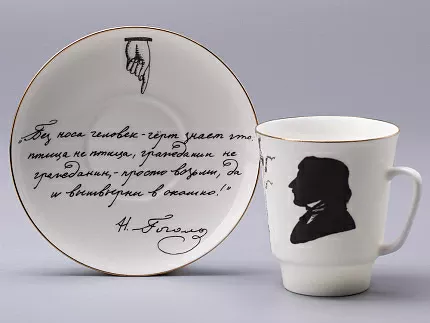 „Без носа человек - чёрт знает что:
птица не птица, гражданин не
гражданин, - просто возьми, да
и вышвырни в окошко!"
Н. Гоголь